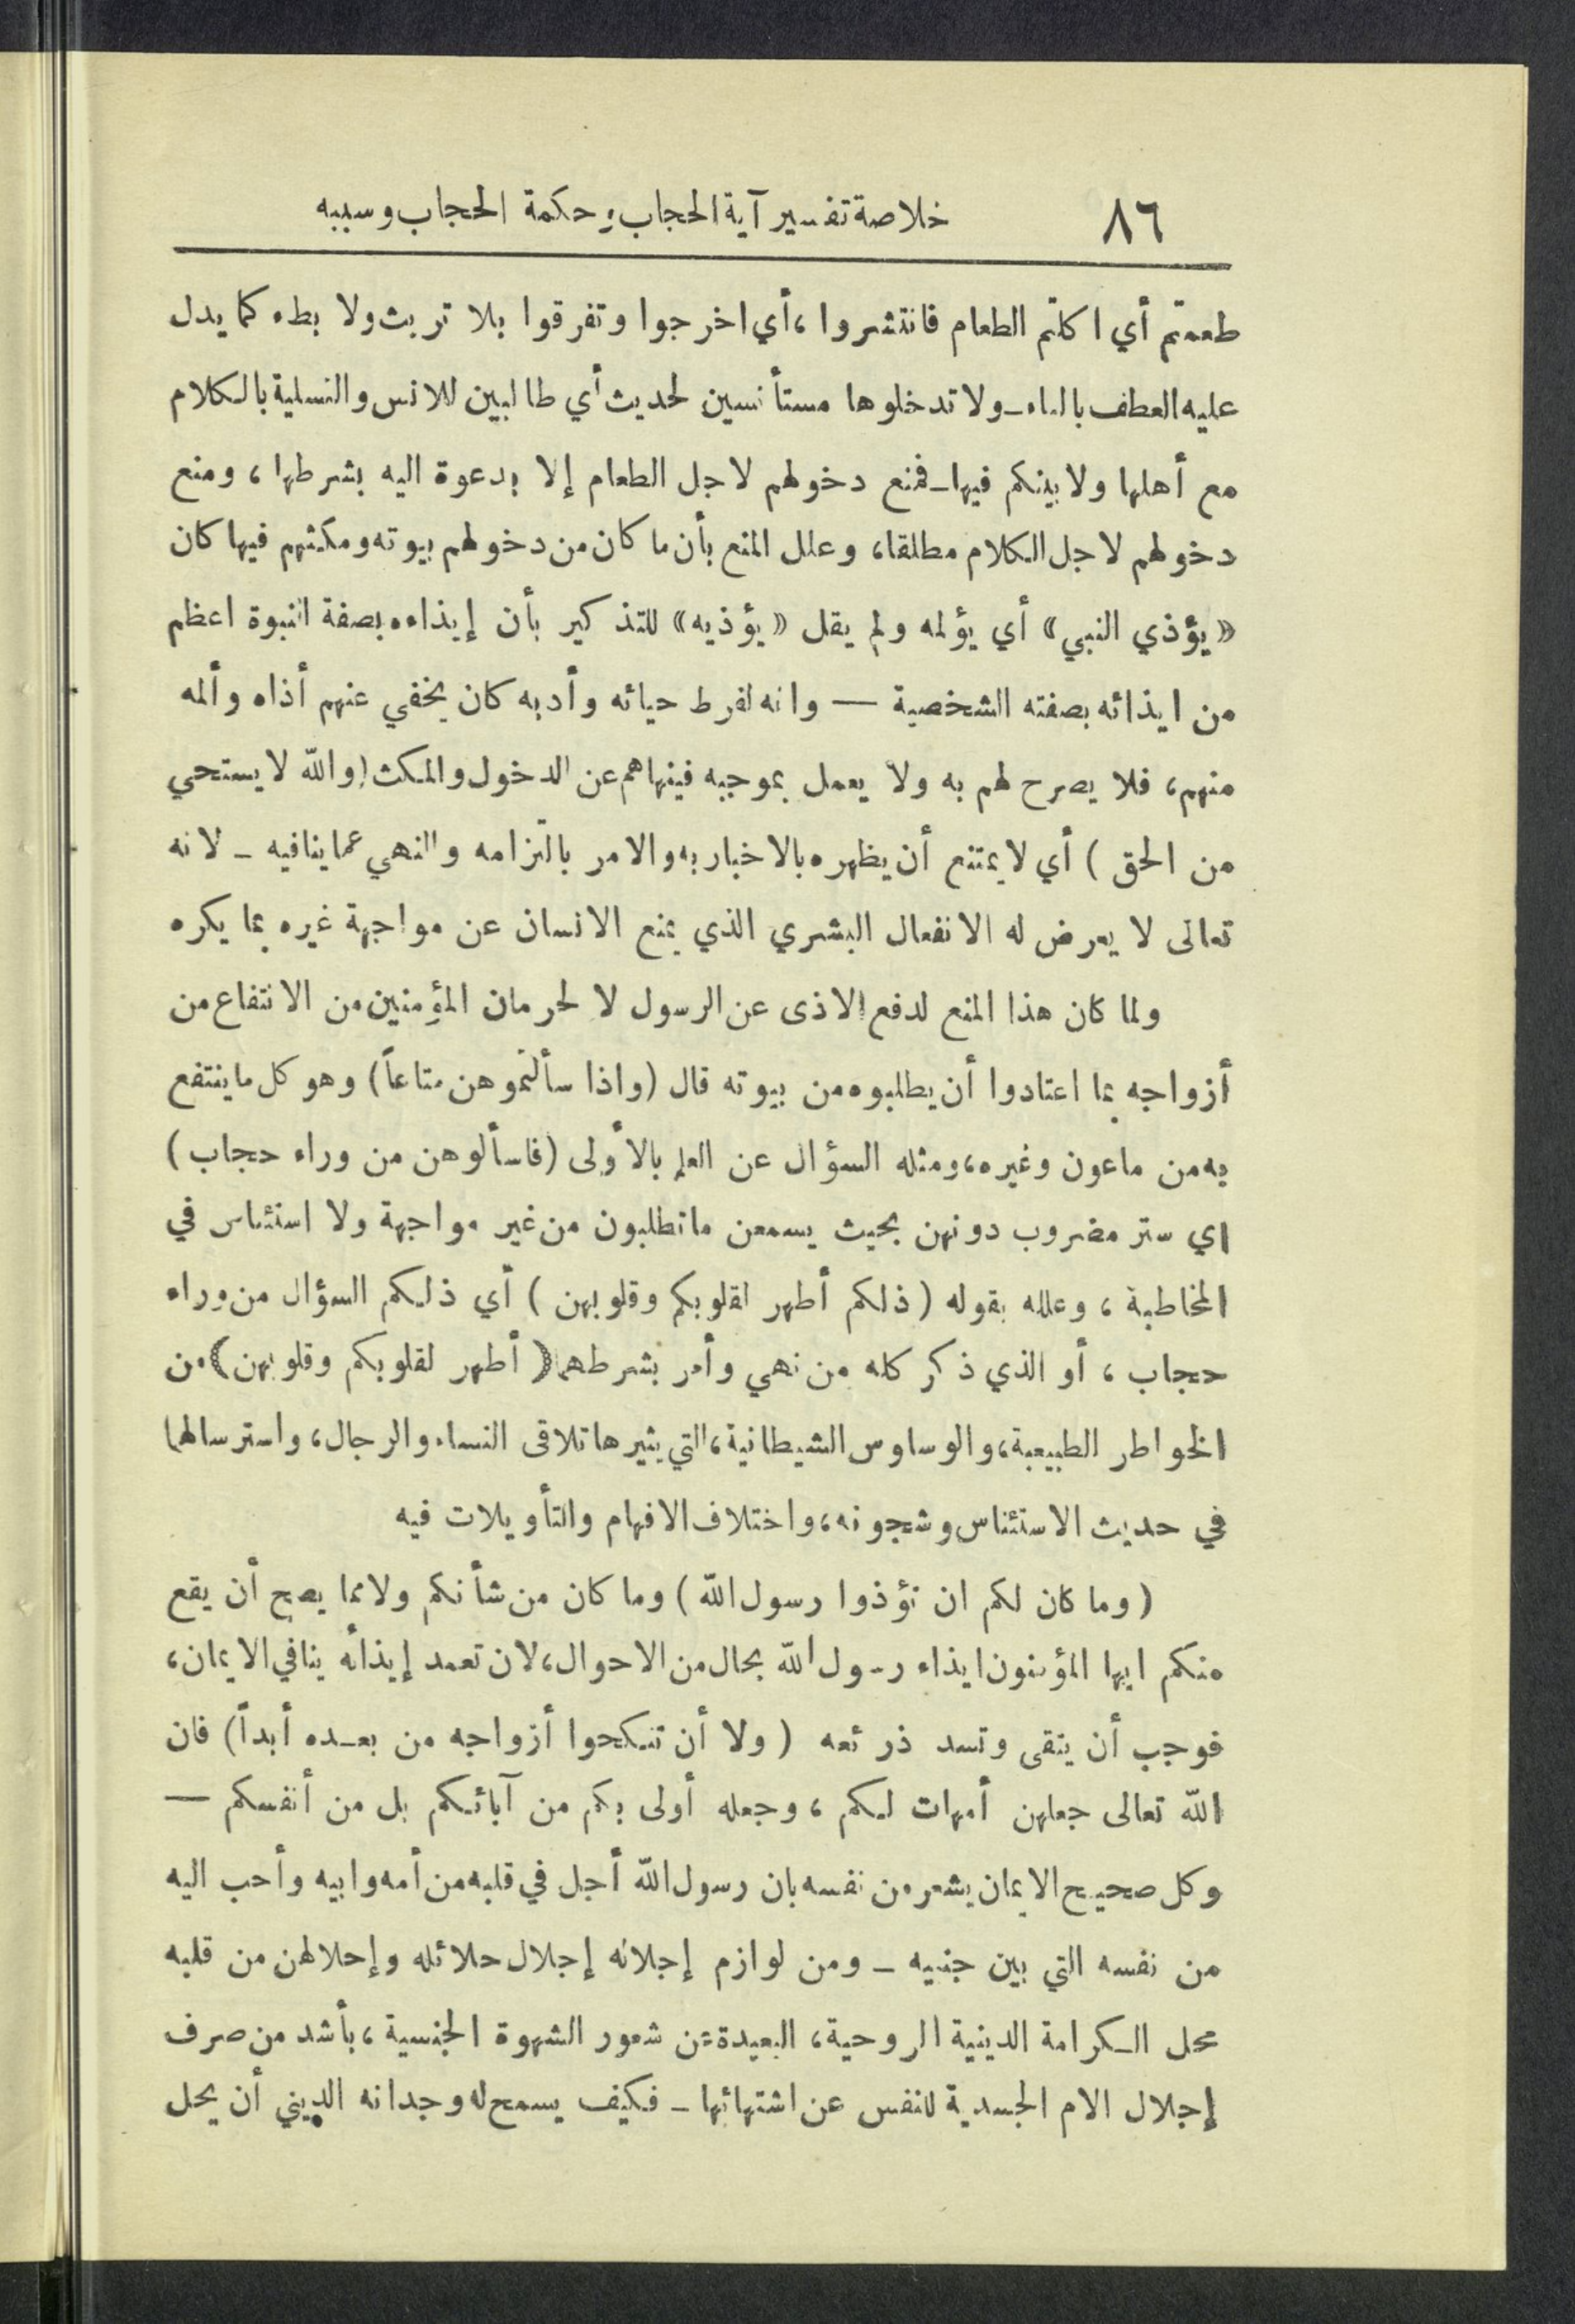 ٨٦ خلاصة تفسير آية الحجاب، حكمة الحجاب وسببه
طعمتم أي اكلتم الطعام فانتشروا ، أي اخرجوا وتفرقوا بلا تربث ولا بطء كما يدل
عليه العطف بالفاء - ولا تدخلوها مستأنسين لحديث أي طالبين للانس والتسلية بالكلام
مع أهلها ولا بينكم فيها - فمنع دخولهم لاجل الطعام إلا بدعوة اليه بشرطها ، ومنع
دخولهم لاجل الكلام مطلقا، وعلل المنع بأن ما كان من دخولهم بيوته ومكثهم فيها كان
«يؤذي النبي» أي يؤلمه ولم يقل «يؤذيه» للتذكير بأن إيذاءه بصفة النبوة اعظم
من ايذائه بصفته الشخصية — وانه لفرط حيائه وأدبه كان يخفي عنهم أذاه وألمه
منهم، فلا يصرح لهم به ولا يعمل بموجبه فينهاهم عن الدخول والمكث (والله لا يستحي
من الحق ) أي لا يمتنع أن يظهره بالاخبار به والامر بالتزامه والنهي عما ينافيه - لانه
تعالى لا يعرض له الانفعال البشري الذي يمنع الانسان عن مواجهة غيره بما يكره
ولما كان هذا المنع لدفع الاذى عن الرسول لا لحرمان المؤمنين من الانتفاع من
أزواجه بما اعتادوا أن يطلبوه من بيوته قال (واذا سألتموهن متاعاً) وهو كل ما ينتفع
به من ماعون وغيره، ومثله السؤال عن العلم بالأولى (فاسألوهن من وراء حجاب)
اي ستر مضروب دونهن بحيث يسمعن ما تطلبون من غير مواجهة ولا استئناس في
المخاطبة ، وعلله بقوله (ذلكم أطهر لقلوبكم وقلوبهن ) أي ذلكم السؤال من وراء
حجاب ، أو الذي ذكر كله من نهي وأمر بشرطهما (أطهر لقلوبكم وقلوبهن) من
الخواطر الطبيعية، والوساوس الشيطانية، التي يثيرها تلاقى النساء والرجال، واسترسالها
في حديث الاستئناس وشجونه، واختلاف الافهام والتأويلات فيه
(وما كان لكم ان تؤذوا رسول الله ) وما كان من شأنكم ولا مما يصح أن يقع
منكم ايها المؤمنون ايذاء رسول الله بحال من الاحوال، لان تعمد إيذائه ينافي الايمان،
فوجب أن يتقى وتسد ذرئعه ( ولا أن تنكحوا أزواجه من بعده أبداً) فان
الله تعالى جعلهن أمهات لكم ، وجعله أولى بكم من آبائكم بل من أنفسكم —
وكل صحيح الايمان يشعر من نفسه بان رسول الله أجل في قلبه من أمه وابيه وأحب اليه
من نفسه التي بين جنبيه - ومن لوازم إجلاله إجلال حلائله وإحلالهن من قلبه
محل الكرامة الدينية الروحية، البعيدة عن شعور الشهوة الجنسية ، بأشد من صرف
إجلال الام الجسدية للنفس عن اشتهائها - فكيف يسمح له وجدانه الديني أن يحل